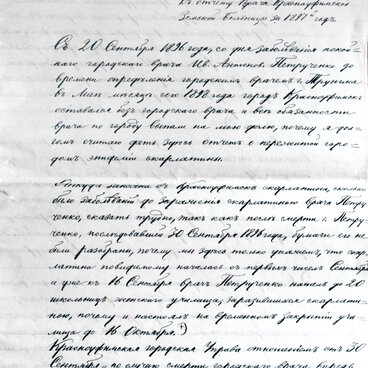 къ отчету врача Красноуфимской
Земской больницы за 1897й годъ.
Съ 20 Сентября 1896 года, со дня заболѣванія покой-
наго городского врача Ив. Антонов. Петрученко до
времени опредѣленія городскимъ врачемъ г. Трунина
въ Маѣ мѣсяцѣ сего 1898 года городъ Красноуфимскъ
оставался безъ городского врача и всѣ обязанности
врача по городу выпали на мою долю, почему я дол-
гомъ считаю дать здѣсь отчетъ о пережитой горо-
домъ эпидеміи скарлатины.
Откуда занесена въ Красноуфимскъ скарлатина, сколько
было заболѣваній до зараженія скарлатиною врача Петру-
ченко, сказать трудно, такъ какъ послѣ смерти г. Петру-
ченко, послѣдовавшей 30 Сентября 1896 года, бумаги его не
были разобраны, почему мы здѣсь только укажемъ, что скар-
латина повидимому началась съ первыхъ чиселъ Сентября
и уже къ 16 Сентября врачъ Петрученко нашелъ до 20
школьницъ женскаго училища, заразившихся скарлати-
ною, почему и настоялъ на временномъ закрытіи учи-
лища до 16 Октября. *)
Красноуфимская городская Управа отношеніемъ отъ 30
Сентября, по случаю смерти городского врача, впредь